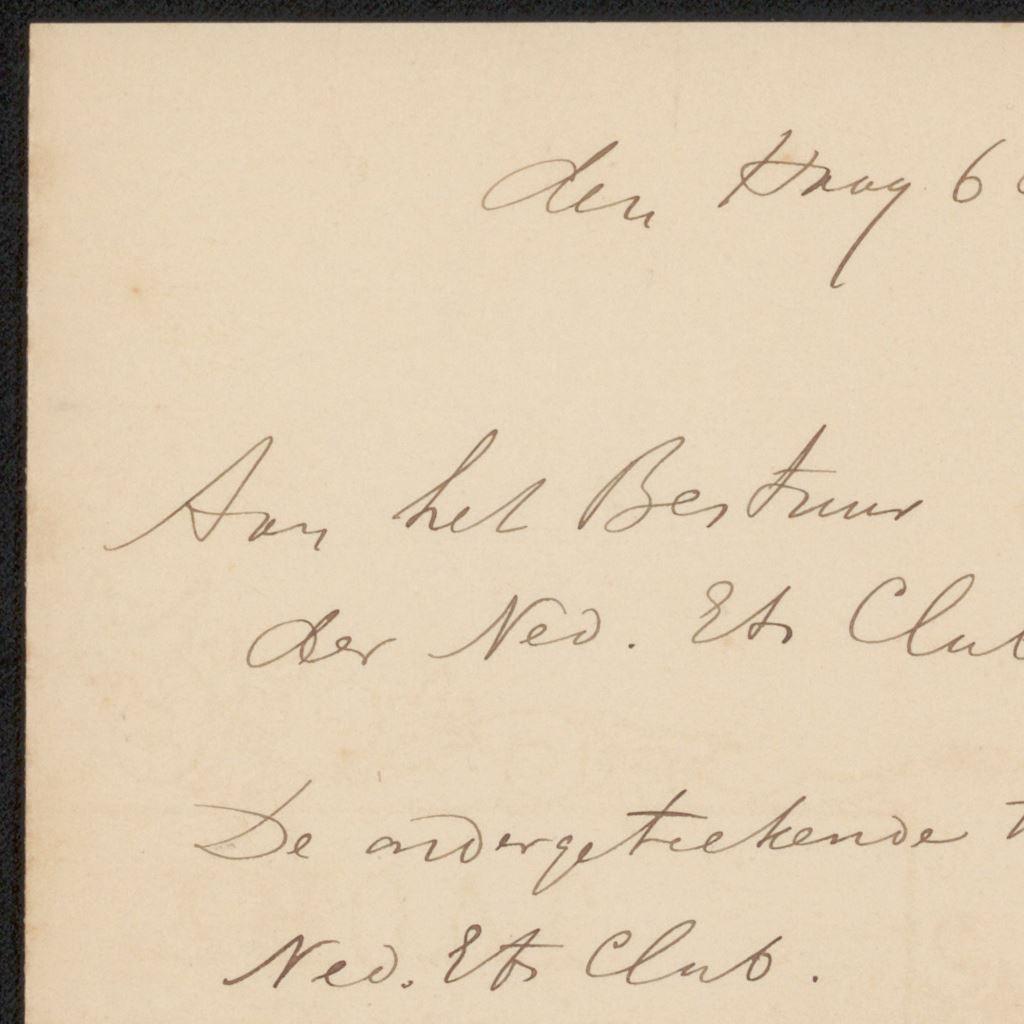 den Haag 6
Aan het Bestuur
der Ned. Ets Club
De ondergeteekende
Ned. Ets Club.